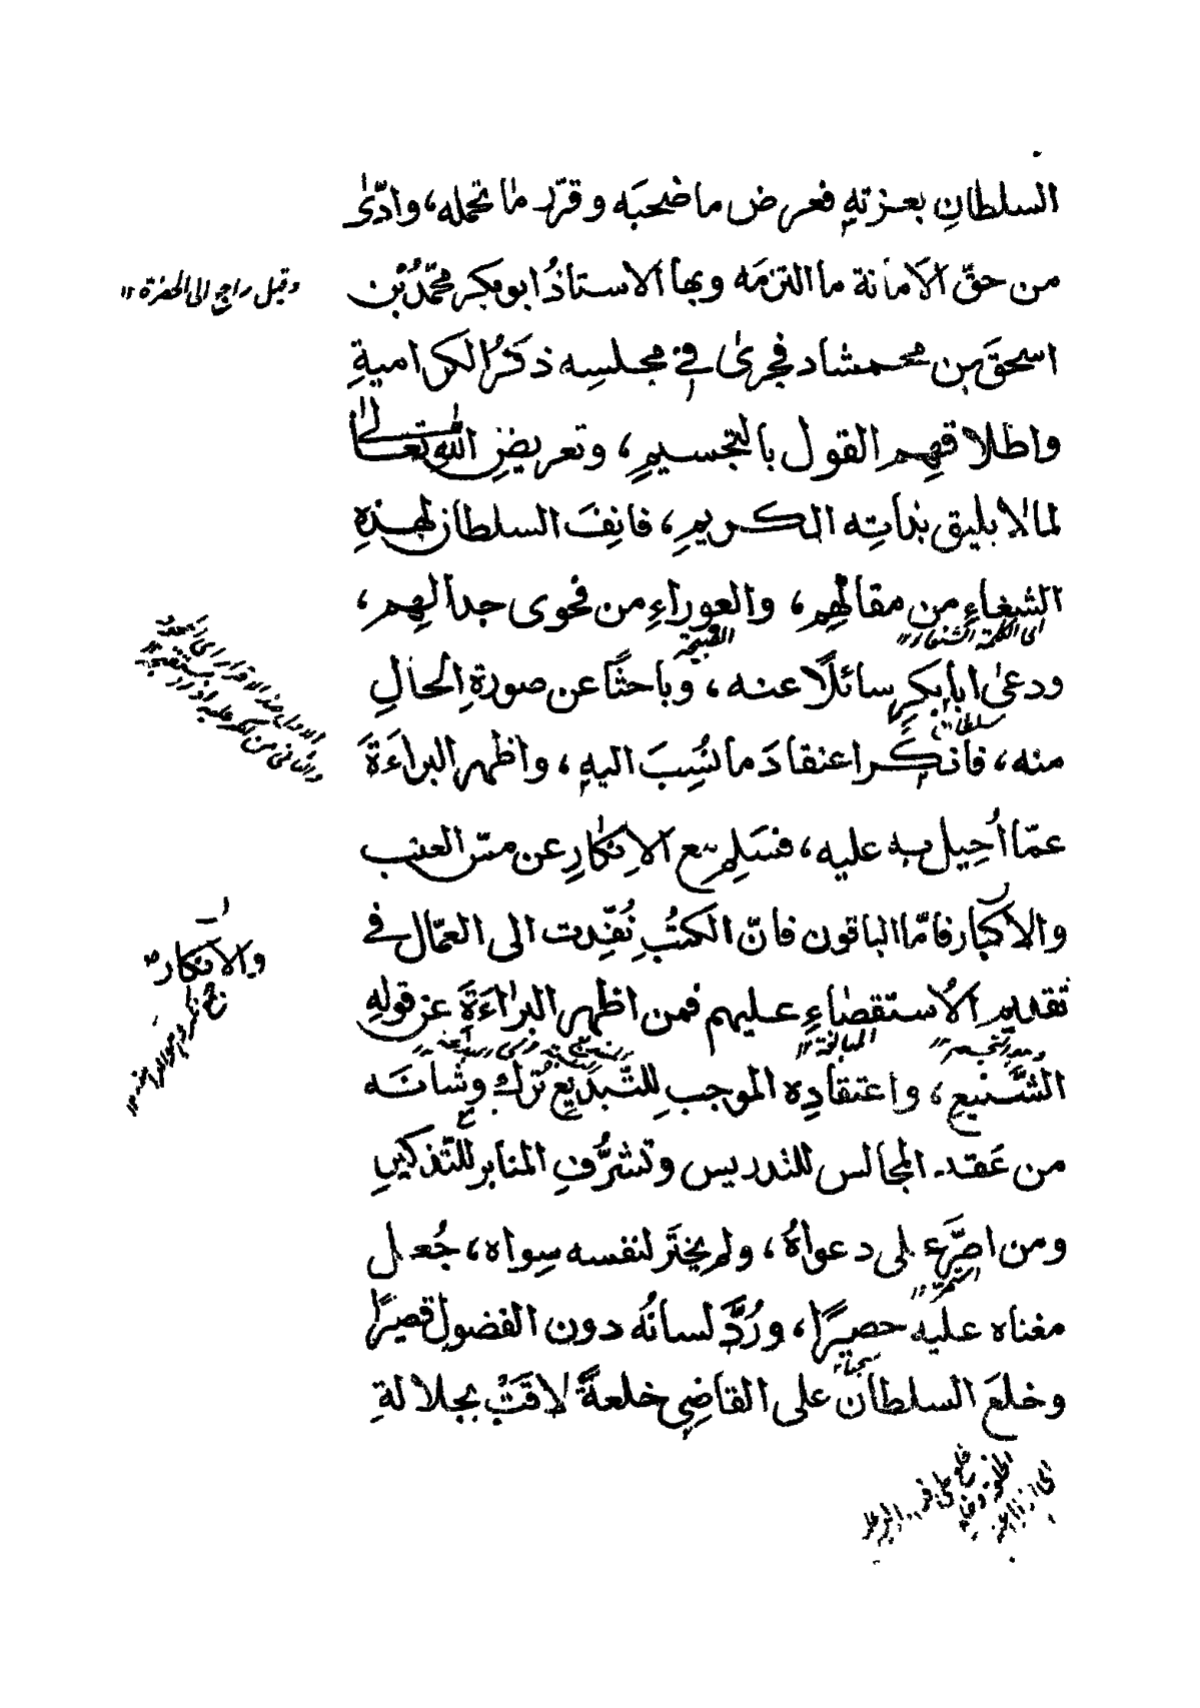 السلطانِ بعزتهِ فعرض ما ضحبَه وقرّر ما تحمله، وادّىٰ
من حقّ الامانة ما التزمَه وبها الاستاذُ ابو بكر محمّدُ بْن
وقيل راجع الى الحضرة
اسحقَ بن محمشاد فجرىٰ في مجلسِه ذكرُ الكراميةِ
واطلاقهِم القول بالتجسيمِ، وتعريضِ الله تعالىٰ
لما لا يليق بذاتِه الكريمِ، فانِفَ السلطان لهذهِ
الشنعاءِ من مقالهِم، والعوراءِ من فحوى جدالهِم،
اى الكلمة الشنعاء
القبيحة
ودعىٰ ابا بكرٍ سائلًا عنه، وباحثًا عن صورةِ الحالِ
سلطان
منه، فانكر اعتقادَ ما نُسِبَ اليهِ، واظهر البراءَةَ
عمّا اُحِيل به عليه، فسَلِم مع الاِنكارِ عن مسّ العتب
والانكار فامّا الباقون فانّ الكتُبِ نُفِّذت الى العمّال في
والانكار
تقديم الاُستقصاءِ عليهم فمن اظهر البراءَةَ عن قولهِ
المبالغة
الشَّنيعِ، واعتقادِه الموجبِ للتّبديعِ تُرك وشانَه
من عَقد المجالس للتدريس وتشرُّفِ المنابر للتّذكيرِ
ومن اصَرَّ على دعواهُ، ولم يختَر لنفسه سِواه، جُعل
استمر
مغناه عليه حصيرًا، ورُدَّ لسانُه دون الفضولِ قصيرًا
وخلعَ السلطان على القاضِي خلعةً لاقَتْ بجلالةِ